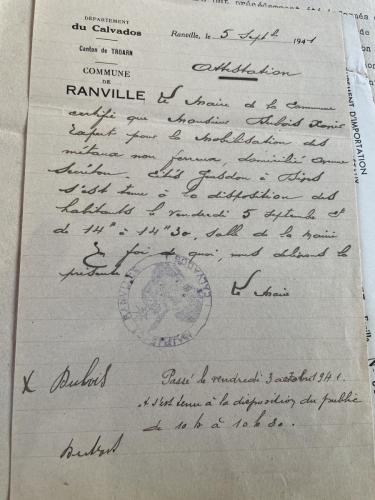 DÉPARTEMENT
du Calvados
Canton de TROARN
COMMUNE
DE
RANVILLE
Ranville, le 5 Septb 1941
Attestation
Le Maire de la Commune
certifie que Monsieur Dubois
Expert pour la Mobilisation des
métaux non ferreux, domicilié
Cité à
s'est tenu à la disposition des
habitants le vendredi 5 septembre ct
de 14h à 14h30, salle de la Mairie
En foi de quoi, nous délivrons la
présente
Le Maire
MAIRIE DE RANVILLE
CALVADOS
X Dubois
Passé le vendredi 3 octobre 941.
et s'est tenu à la disposition du public
de 10 h à 10 h 30.
Dubois
D'IMPORTATION